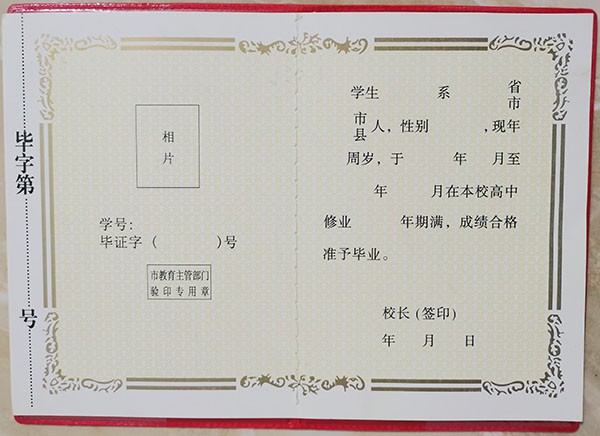 毕字第
号
相
片
学号：
毕证字（ ）号
市教育主管部门
验印专用章
学生 系 省市
市县人，性别 ，现年
周岁，于 年 月至
年 月在本校高中
修业 年期满，成绩合格
准予毕业。
校长（签印）
年 月 日